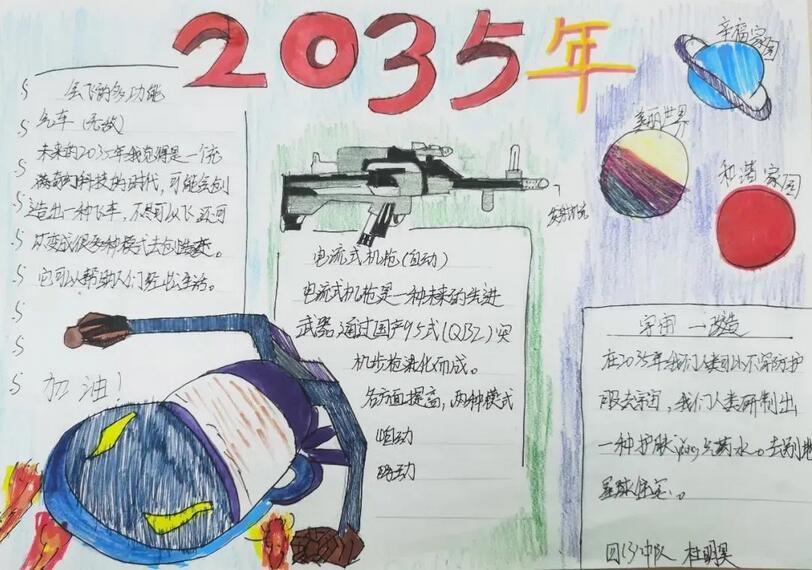 2035年
会飞的多功能
汽车(无敌)
未来的2035年我觉得是一个充
满奇幻科技的时代,可能会创
造出一种飞车,不尽可以飞还可
以变成很多种模式去创造。
它可以帮助人们
加油!
电流式机枪(自动)
电流式机枪是一种未来的先进
武器通过国产95式(QBZ)突
机步枪进化而成。
各方面提高,两种模式
1自动
2手动
幸福家园
美丽世界
和谐家园
宇宙一改造
在2035年我们人类可以不穿防护
服去宇宙,我们人类研制出
一种护肤 药水。去别地
星球住宅。
四(3)中队 杜明昊